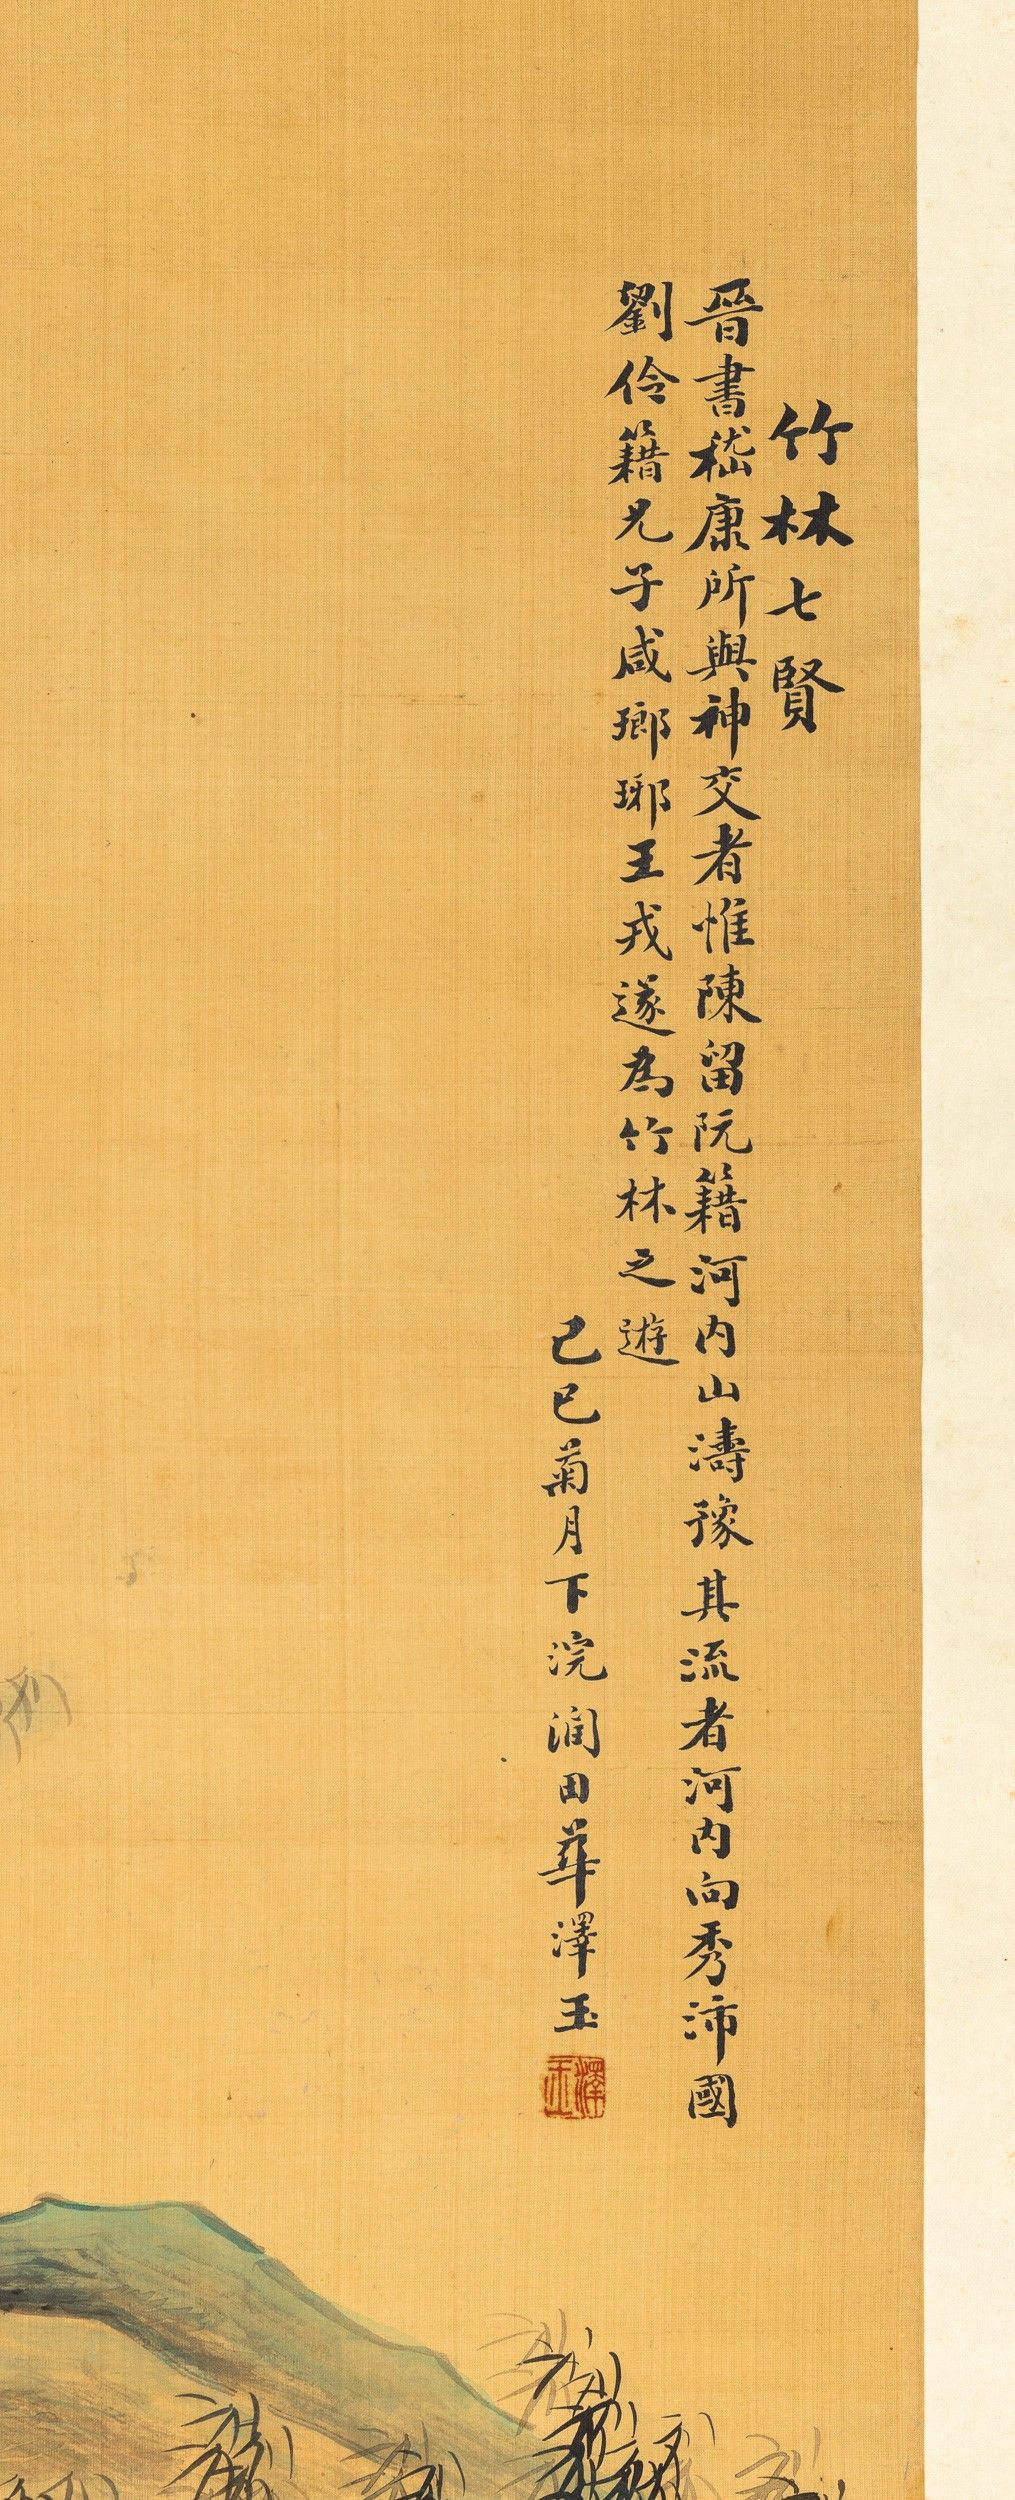 竹林七賢
晉書嵇康所與神交者惟陳留阮籍河内山濤豫其流者河内向秀沛國
劉伶籍兄子咸瑯琊王戎遂為竹林之遊
己巳菊月下浣潤田華澤玉
澤玉